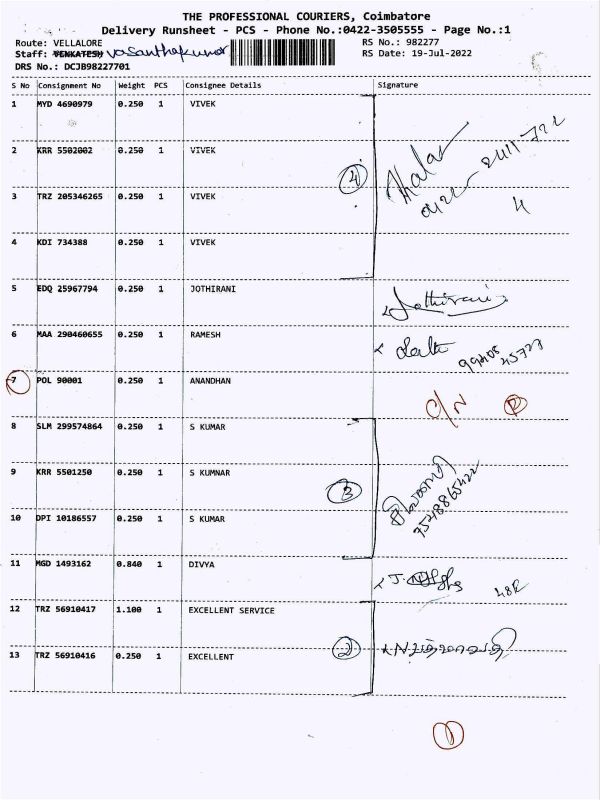 THE PROFESSIONAL COURIERS, Coimbatore
Delivery Runsheet - PCS - Phone No.:0422-3505555 - Page No.:1
Route: VELLALORE RS No.: 982277
Staff: VENKATESH vasanthakumar RS Date: 19-Jul-2022
DRS No.: DCJB98227701
S No Consignment No Weight PCS Consignee Details Signature
1 MYD 4690979 0.250 1 VIVEK
2 KRR 5502002 0.250 1 VIVEK
4
3 TRZ 205346265 0.250 1 VIVEK
4
4 KDI 734388 0.250 1 VIVEK
5 EDQ 25967794 0.250 1 JOTHIRANI
Jothirani
6 MAA 290460655 0.250 1 RAMESH
7 POL 90001 0.250 1 ANANDHAN
C/N R
8 SLM 299574864 0.250 1 S KUMAR
9 KRR 5501250 0.250 1 S KUMNAR
3
10 DPI 10186557 0.250 1 S KUMAR
11 MGD 1493162 0.840 1 DIVYA
12 TRZ 56910417 1.100 1 EXCELLENT SERVICE
2
13 TRZ 56910416 0.250 1 EXCELLENT
1